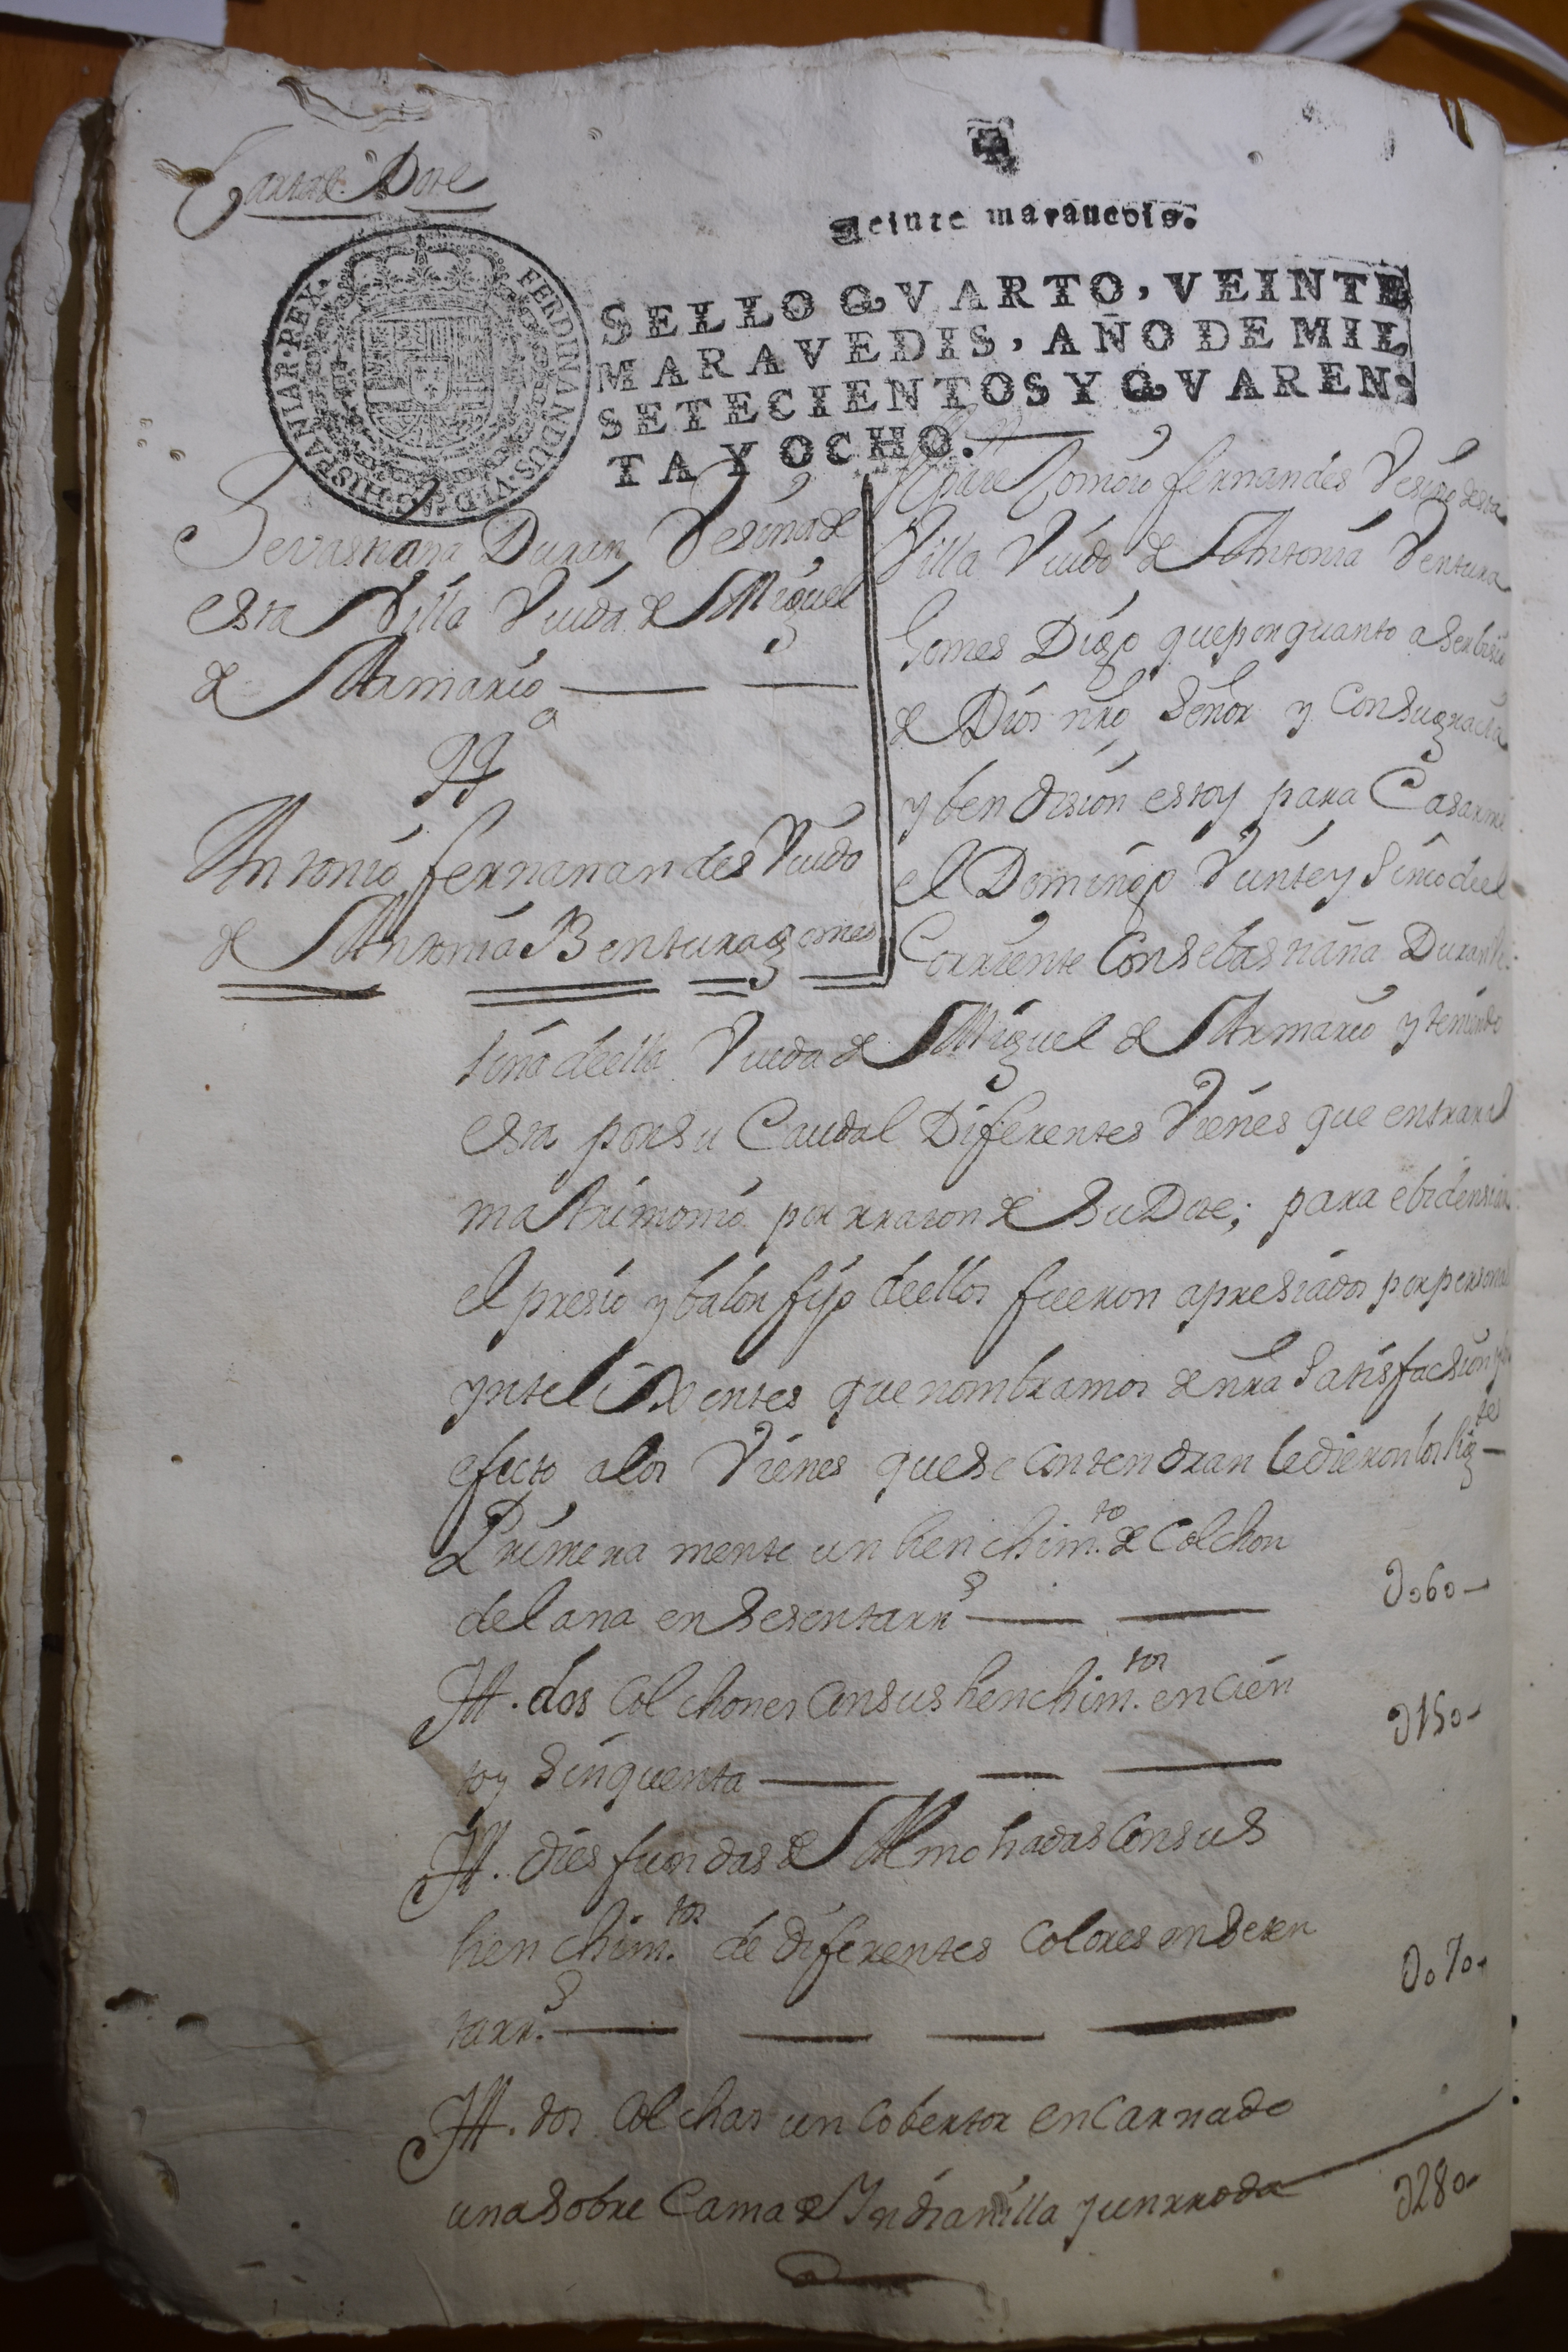 Carta de Dote
Veinte maravedis.
HISPANIAR·REX· FERDINANDUS·VI·D·G·
SELLO QVARTO, VEINTE
MARAVEDIS, AÑO DE MIL
SETECIENTOS Y QVAREN-
TA Y OCHO.
Sevastiana Duran Vesina de
esta Villa Viuda de Miguel
de Armario
a
Antonio fernanandes Viudo
de Antonia Bentura gomes
Antonio fernandes Vesino desta
Villa Viudo de Antonia Ventura
Gomes Digo que por quanto a Serbisio
de Dios nro Señor y Con Su grasia
y bendision estoy para Casarme
el Domingo Veinte y Sinco de el
Corriente Con Sebastiana Duran Ve-
sina de ella Viuda de Miguel de Armario y teniendo
esta por Su Caudal Diferentes Vienes que entrar al
matrimonio por rrason de Su Dote; para ebidensiar
el presio y balor fijo de ellos fueron apresiados por personas
ynteligentes que nombramos de nra Satisfacsion y
efecto a los Vienes que se contendran le dieron los sigtes
Primeramente un henchimto de Colchon
de lana en Sesenta rrs
060
Itt. dos Colchones Con sus henchimtos en Cien
to y Sinquenta
150
Itt. dies fundas de Almohadas Con sus
henchimtos de diferentes Colores en Seten
ta rrs
070
Itt. dos Colchas un Cobertor enCarnado
una Sobre Cama de Yndianilla y un rroda
280